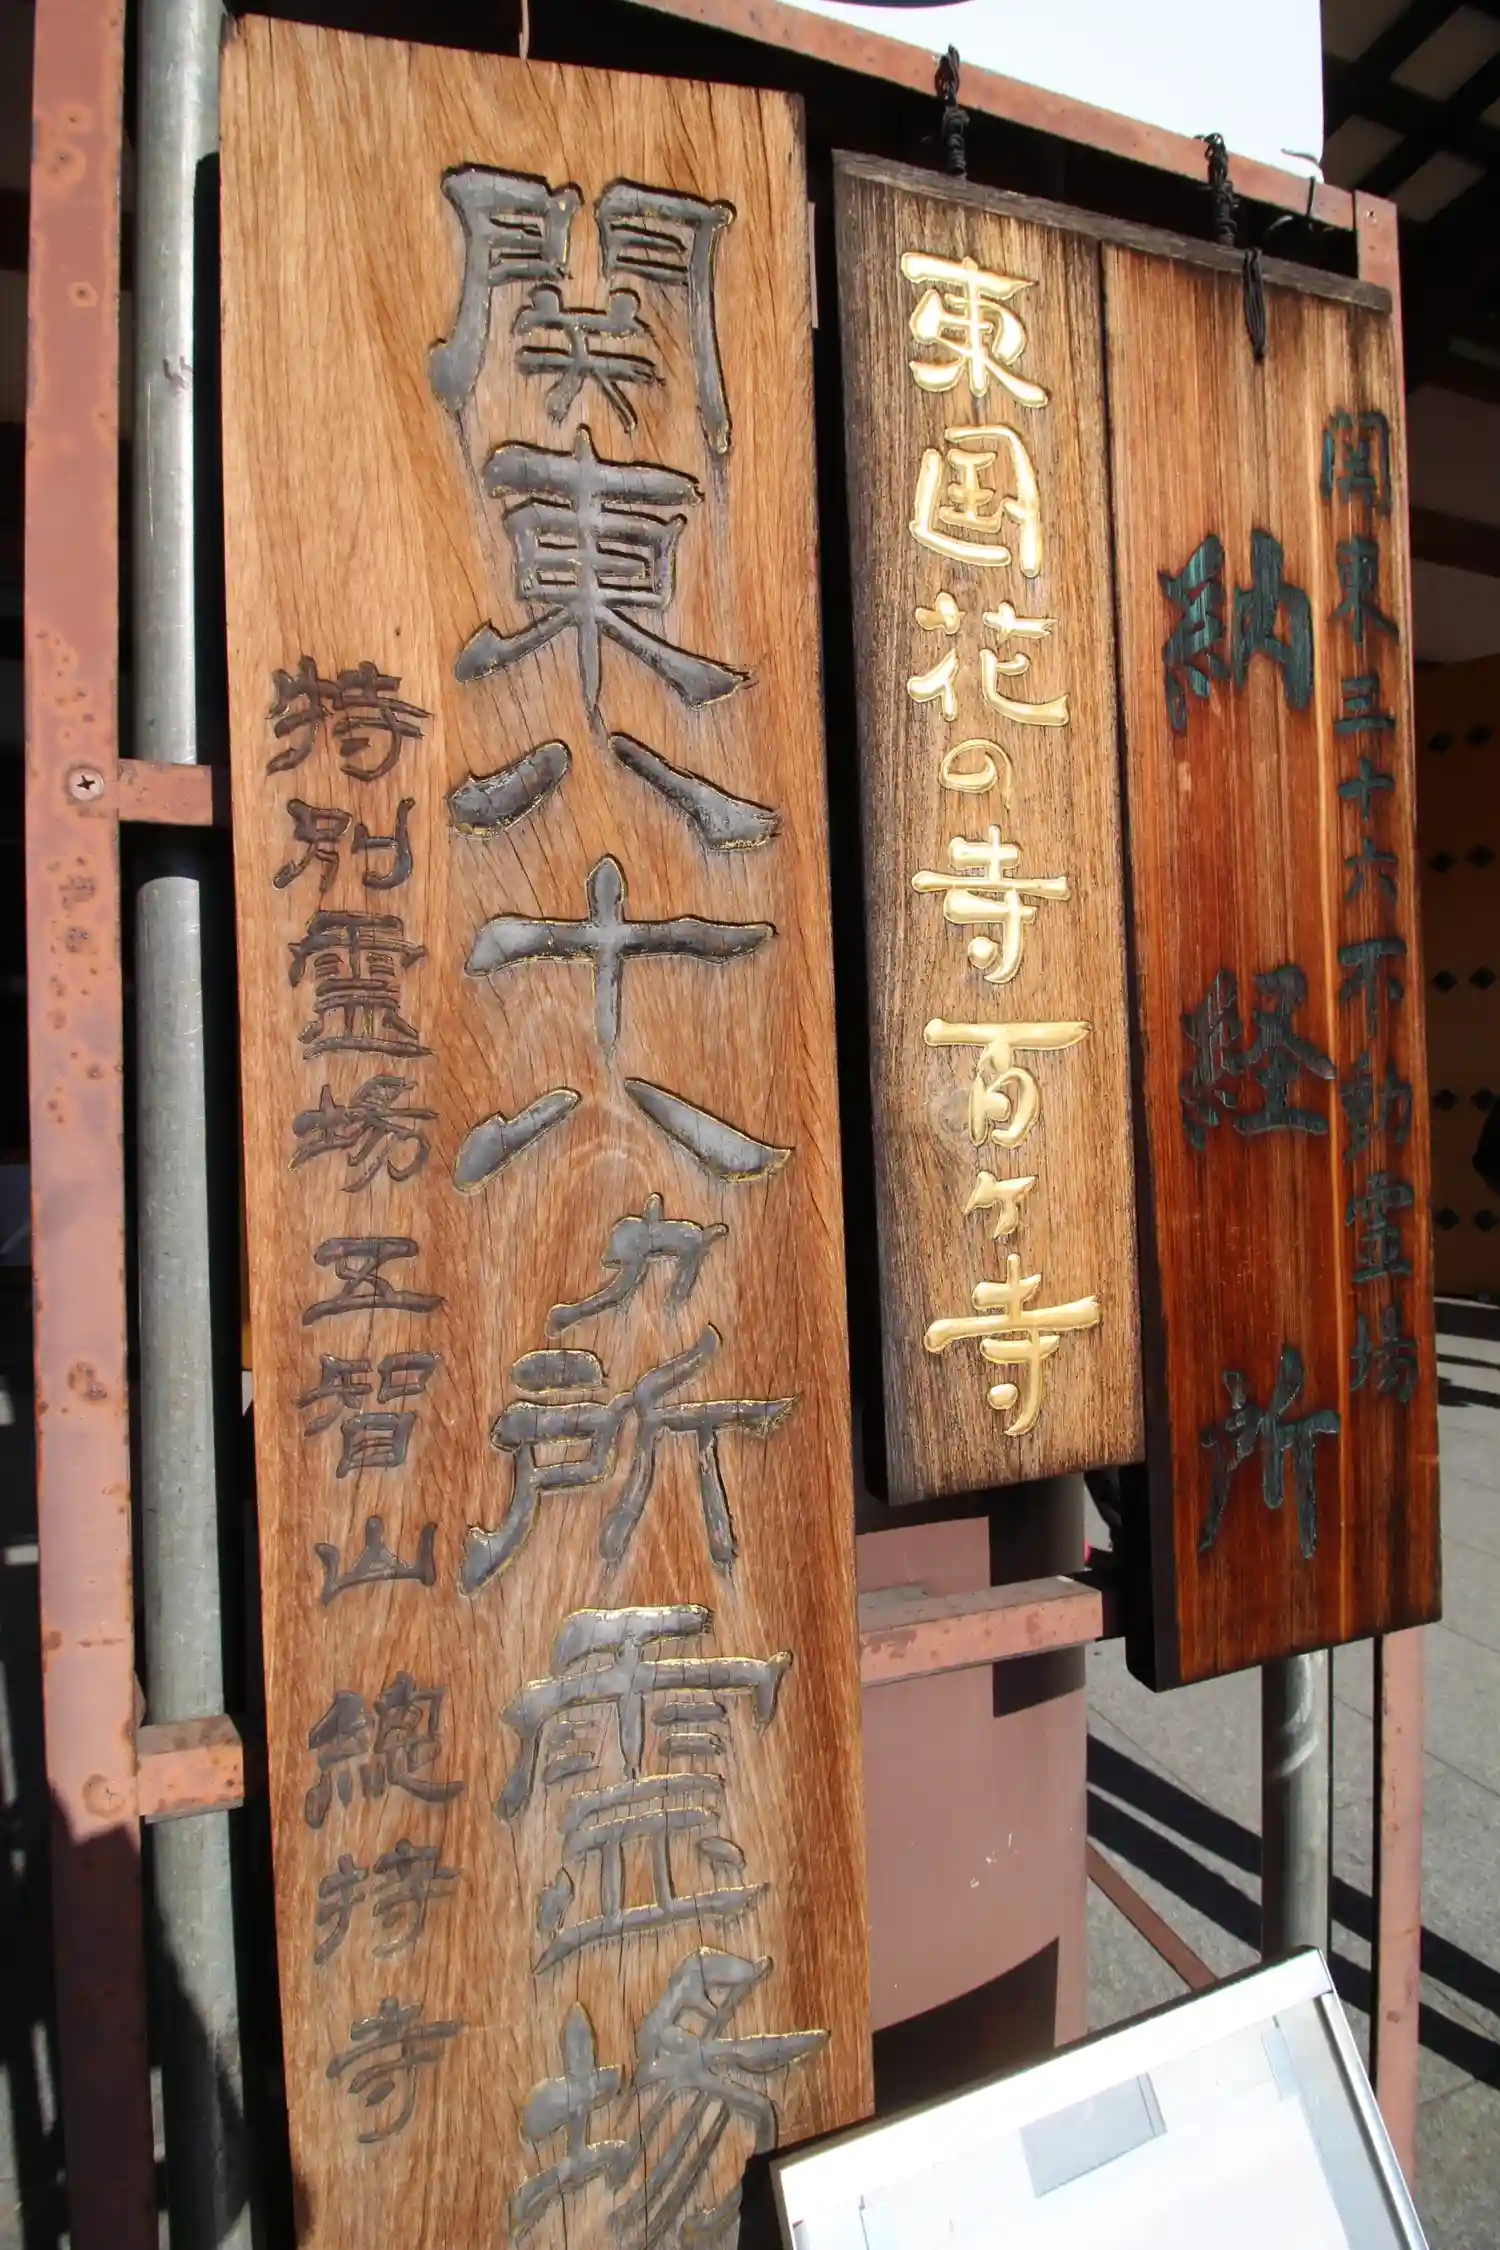 関東三十六不動霊場
納経所
東国花の寺百ヶ寺
関東八十八カ所霊場
特別霊場 五智山 總持寺